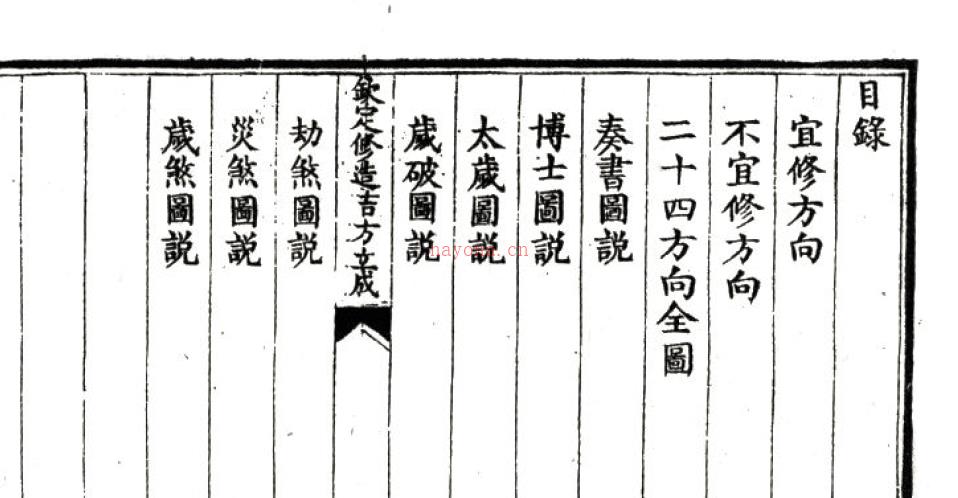 目錄
宜修方向
不宜修方向
二十四方向全圖
奏書圖説
博士圖説
太歲圖説
歲破圖説
欽定修造吉方立成
劫煞圖説
災煞圖説
歲煞圖説